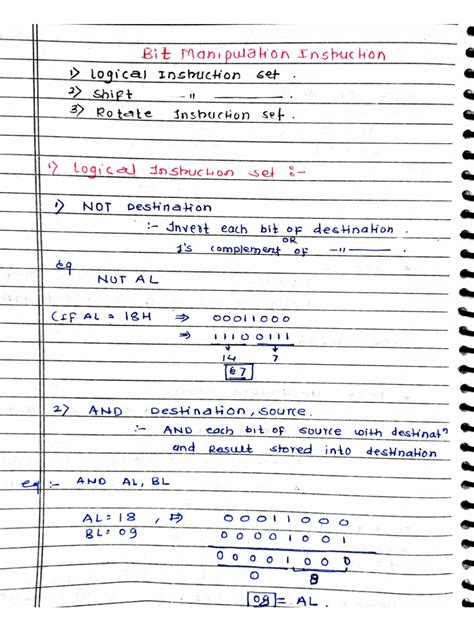 Bit Manipulation Instruction
1) Logical Instruction set .
2) Shift —"— ———
3) Rotate Instruction set .
1) Logical Instruction set :-
1) NOT Destination
:- Invert each bit of destination .
OR
1's complement of —"———
eg
NOT AL
(IF AL = 18H ⇒ 00011000
⇒ 11100111
14 7
E7
2) AND Destination, Source.
:- AND each bit of source with destinatn
and Result stored into destination
eg :- AND AL, BL
AL = 18 , ⇒ 00011000
BL = 09 00001001
00001000
0 8
08 = AL .